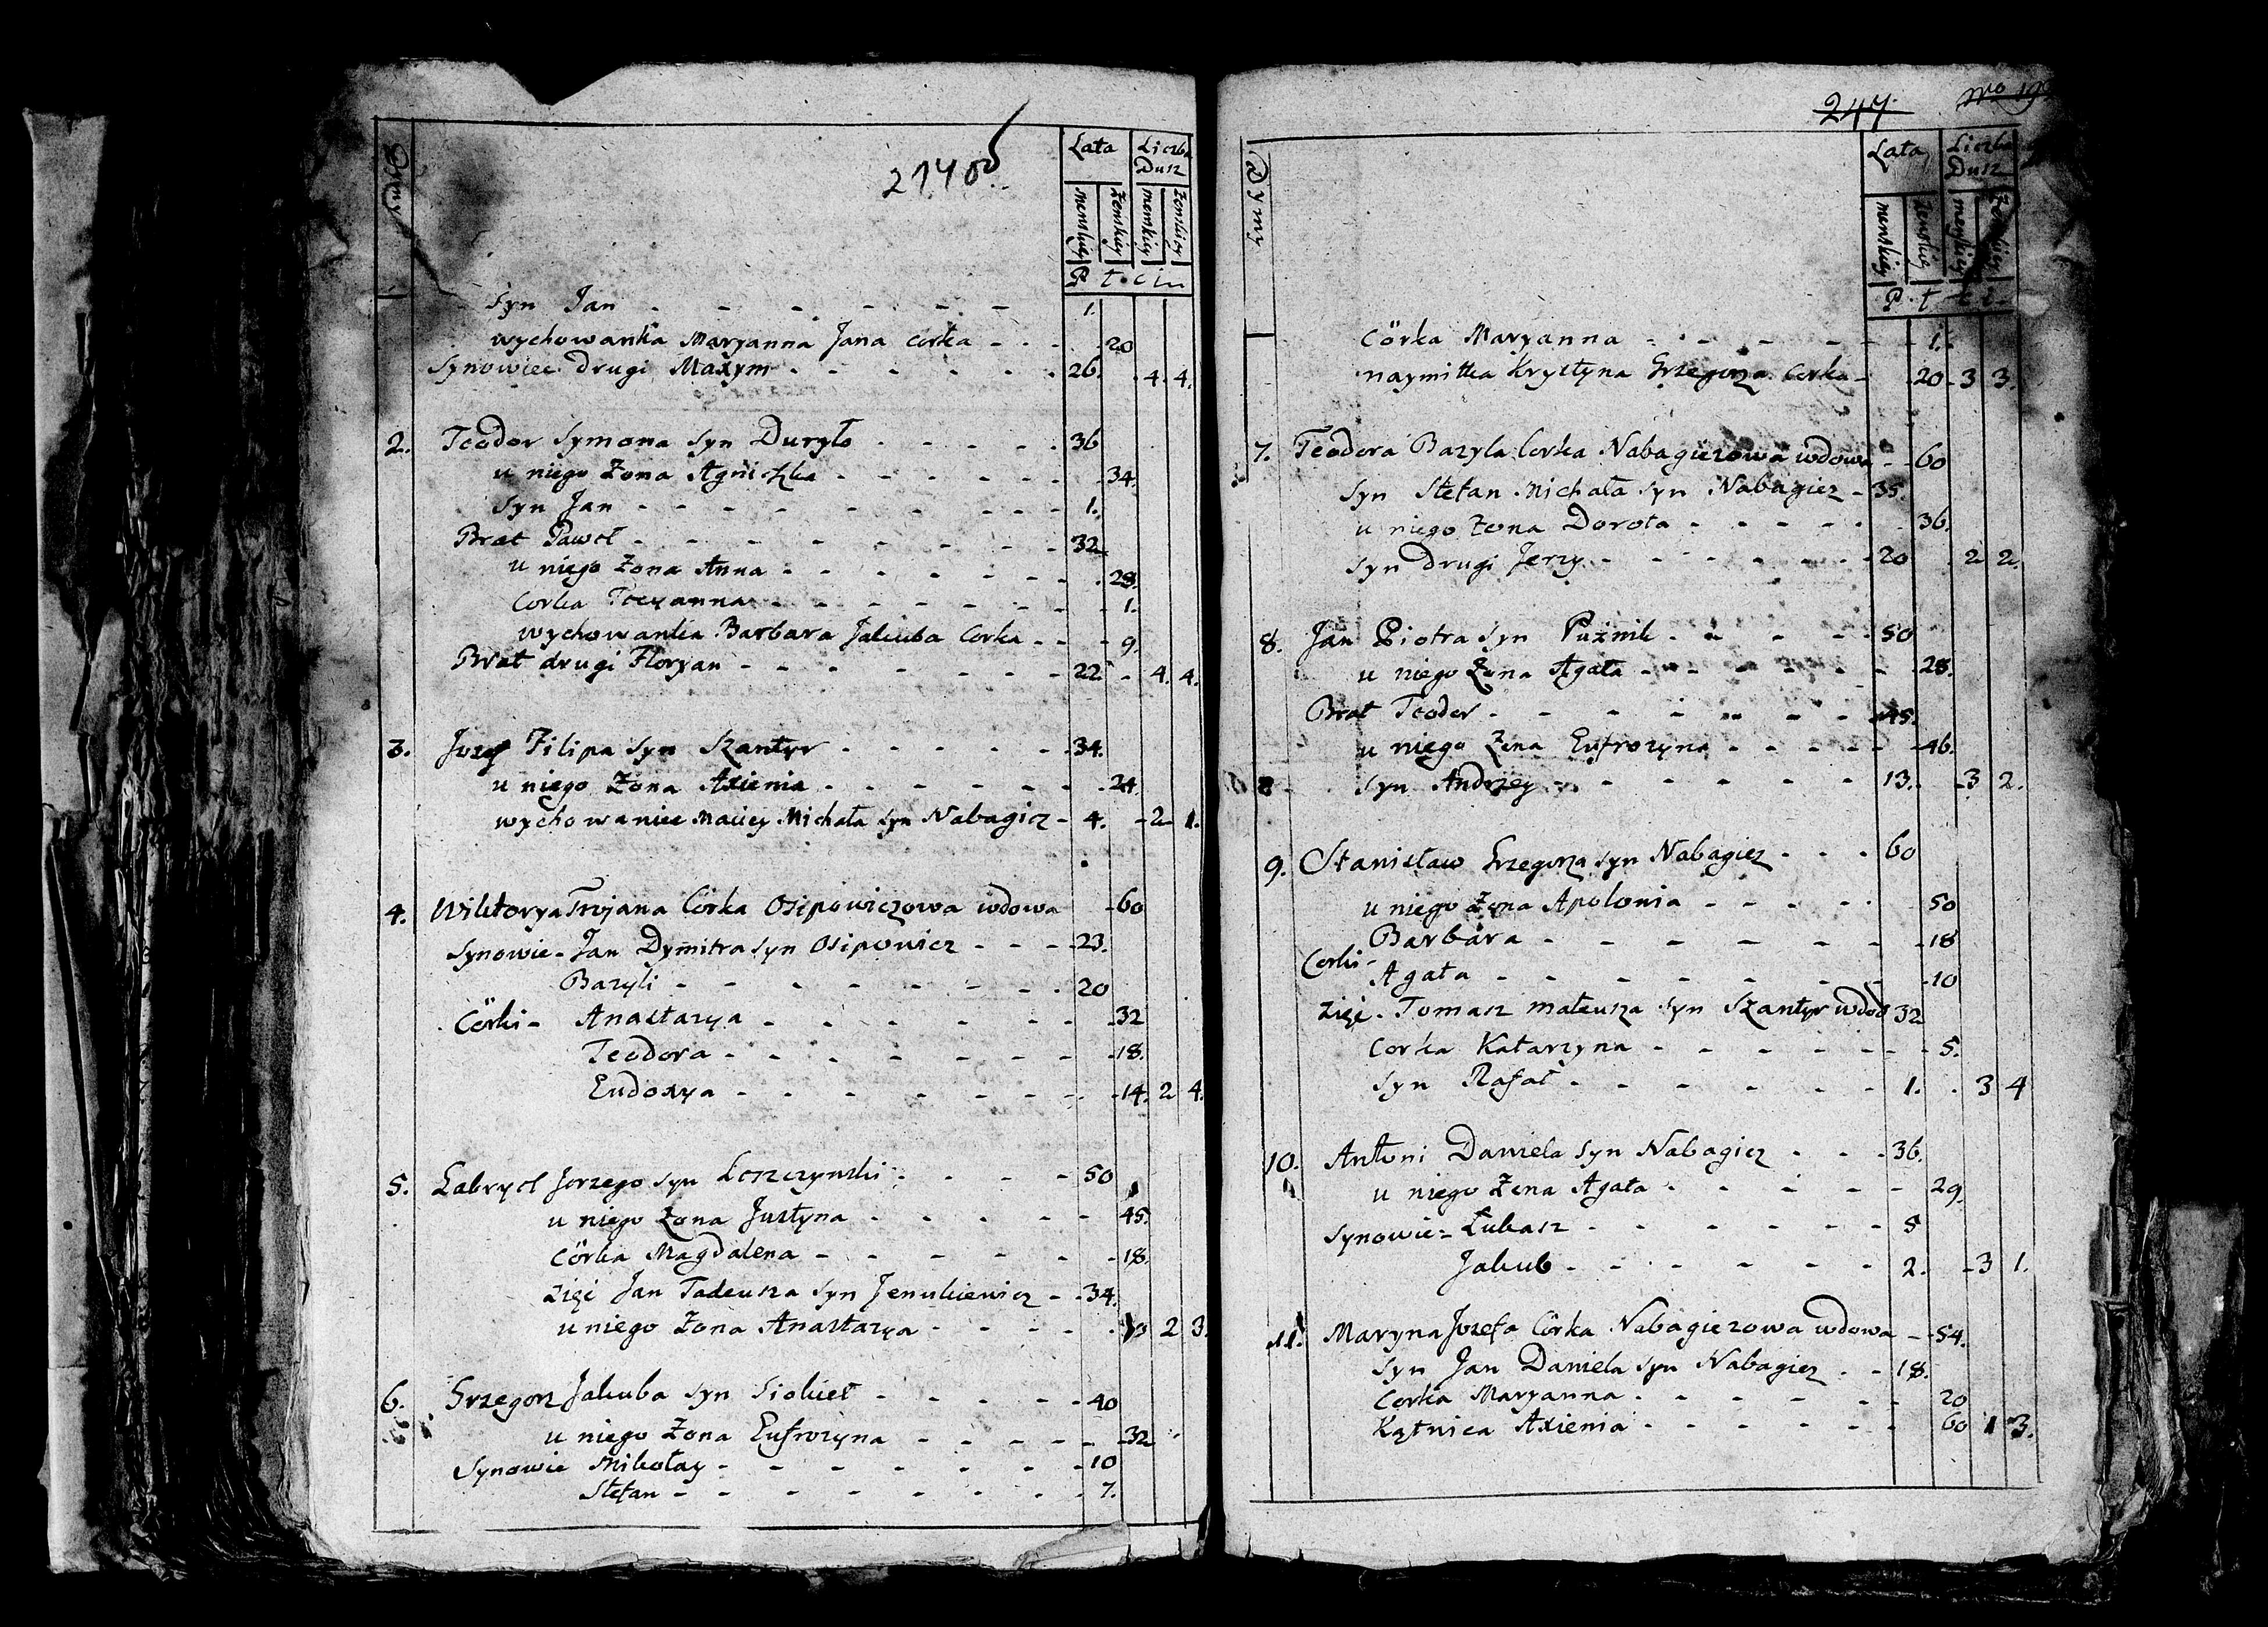 2740б
Dymy
Lata
Liczba Dusz
męnskiey
żenskiey
męnskiey
żenskiey
P t c i n
Syn Jan - - - 1.
wychowanka Maryanna Jana corka - - 20
Synowiec drugi Maxym - - - 26. 4. 4.
2. Teodor Symona Syn Duryło - - - 36
u niego Żona Agniszka - - - 34.
Syn Jan - - - 1.
Brat Paweł - - - 32
u niego Żona Anna - - - 28.
Corka - - - 1.
wychowanka Barbara Jakuba Corka - - 9.
Brat drugi Floryan - - - 22. 4. 4.
3. Jozef Filipa Syn Szantyr - - - 34.
u niego Żona Axienia - - - 24.
wychowaniec Maciey Michała Syn Nabagicz - 4. 2 1.
4. Wiktorya Trojana Córka Osipowiczowa wdowa - 60
Synowie - Jan Dymitra Syn Osipowicz - - - 23.
Bazyli - - - 20
Córki - Anastazya - - - 32
Teodora - - - 18.
Eudoxya - - - 14. 2 4.
5. Gabryel Jerzego Syn Leszczynski - - - 50
u niego Żona Justyna - - - 45.
Córka Magdalena - - - 18.
Zięć Jan Tadeusza Syn Jenukiewicz - - 34.
u niego Żona Anastazya - - - 2 3.
6. Grzegorz Jakuba Syn Siokieł - - - 40
u niego Żona Eufrozyna - - - 32
Synowie Mikołay - - - 10
Stefan - - - 7.
247.
Dymy
Lata
Liczba Dusz
męnskiey
żenskiey
męnskiey
żenskiey
P. t
Córka Maryanna - - - 1.
naymitka Krystyna Grzegorza Corka - 20 3 3.
7. Teodora Bazyla Corka Nabagiczowa wdowa - - 60
Syn Stefan Michała Syn Nabagicz - 35.
u niego Żona Dorota - - - 36.
Syn drugi Jerzy - - - 20 2 2.
8. Jan Piotra Syn Puźnik - - - 50
u niego Żona Agata - - - 28.
Brat Teodor - - - 45.
u niego Żona Eufrozyna - - - 46.
Syn Andrzey - - - 13. 3 2.
9. Stanisław Grzegorza Syn Nabagicz - - - 60
u niego Żona Apolonia - - - 50
Barbara - - - 18
Corki -
Agata - - - 10
Zięć - Tomasz Mateusza Syn Szantyr wdow 32
Corka Katarzyna - - - 5.
Syn Rafał - - - 1. 3 4
10. Antoni Daniela Syn Nabagicz - - - 36.
u niego Żona Agata - - - 29.
Synowie - Łukasz - - - 5
Jakub - - - 2. 3 1.
11. Maryna Jozefa Córka Nabagiczowa wdowa - - 54.
Syn Jan Daniela Syn Nabagicz - - 18.
Corka Maryanna - - - 20
Kątnica Axienia - - - 60 1 3.